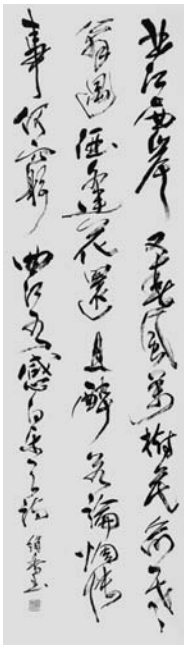 曲江西岸又春風萬樹花前一老
翁遇酒逢花還且醉若論惆悵
事何窮 曲江有感白樂天詩